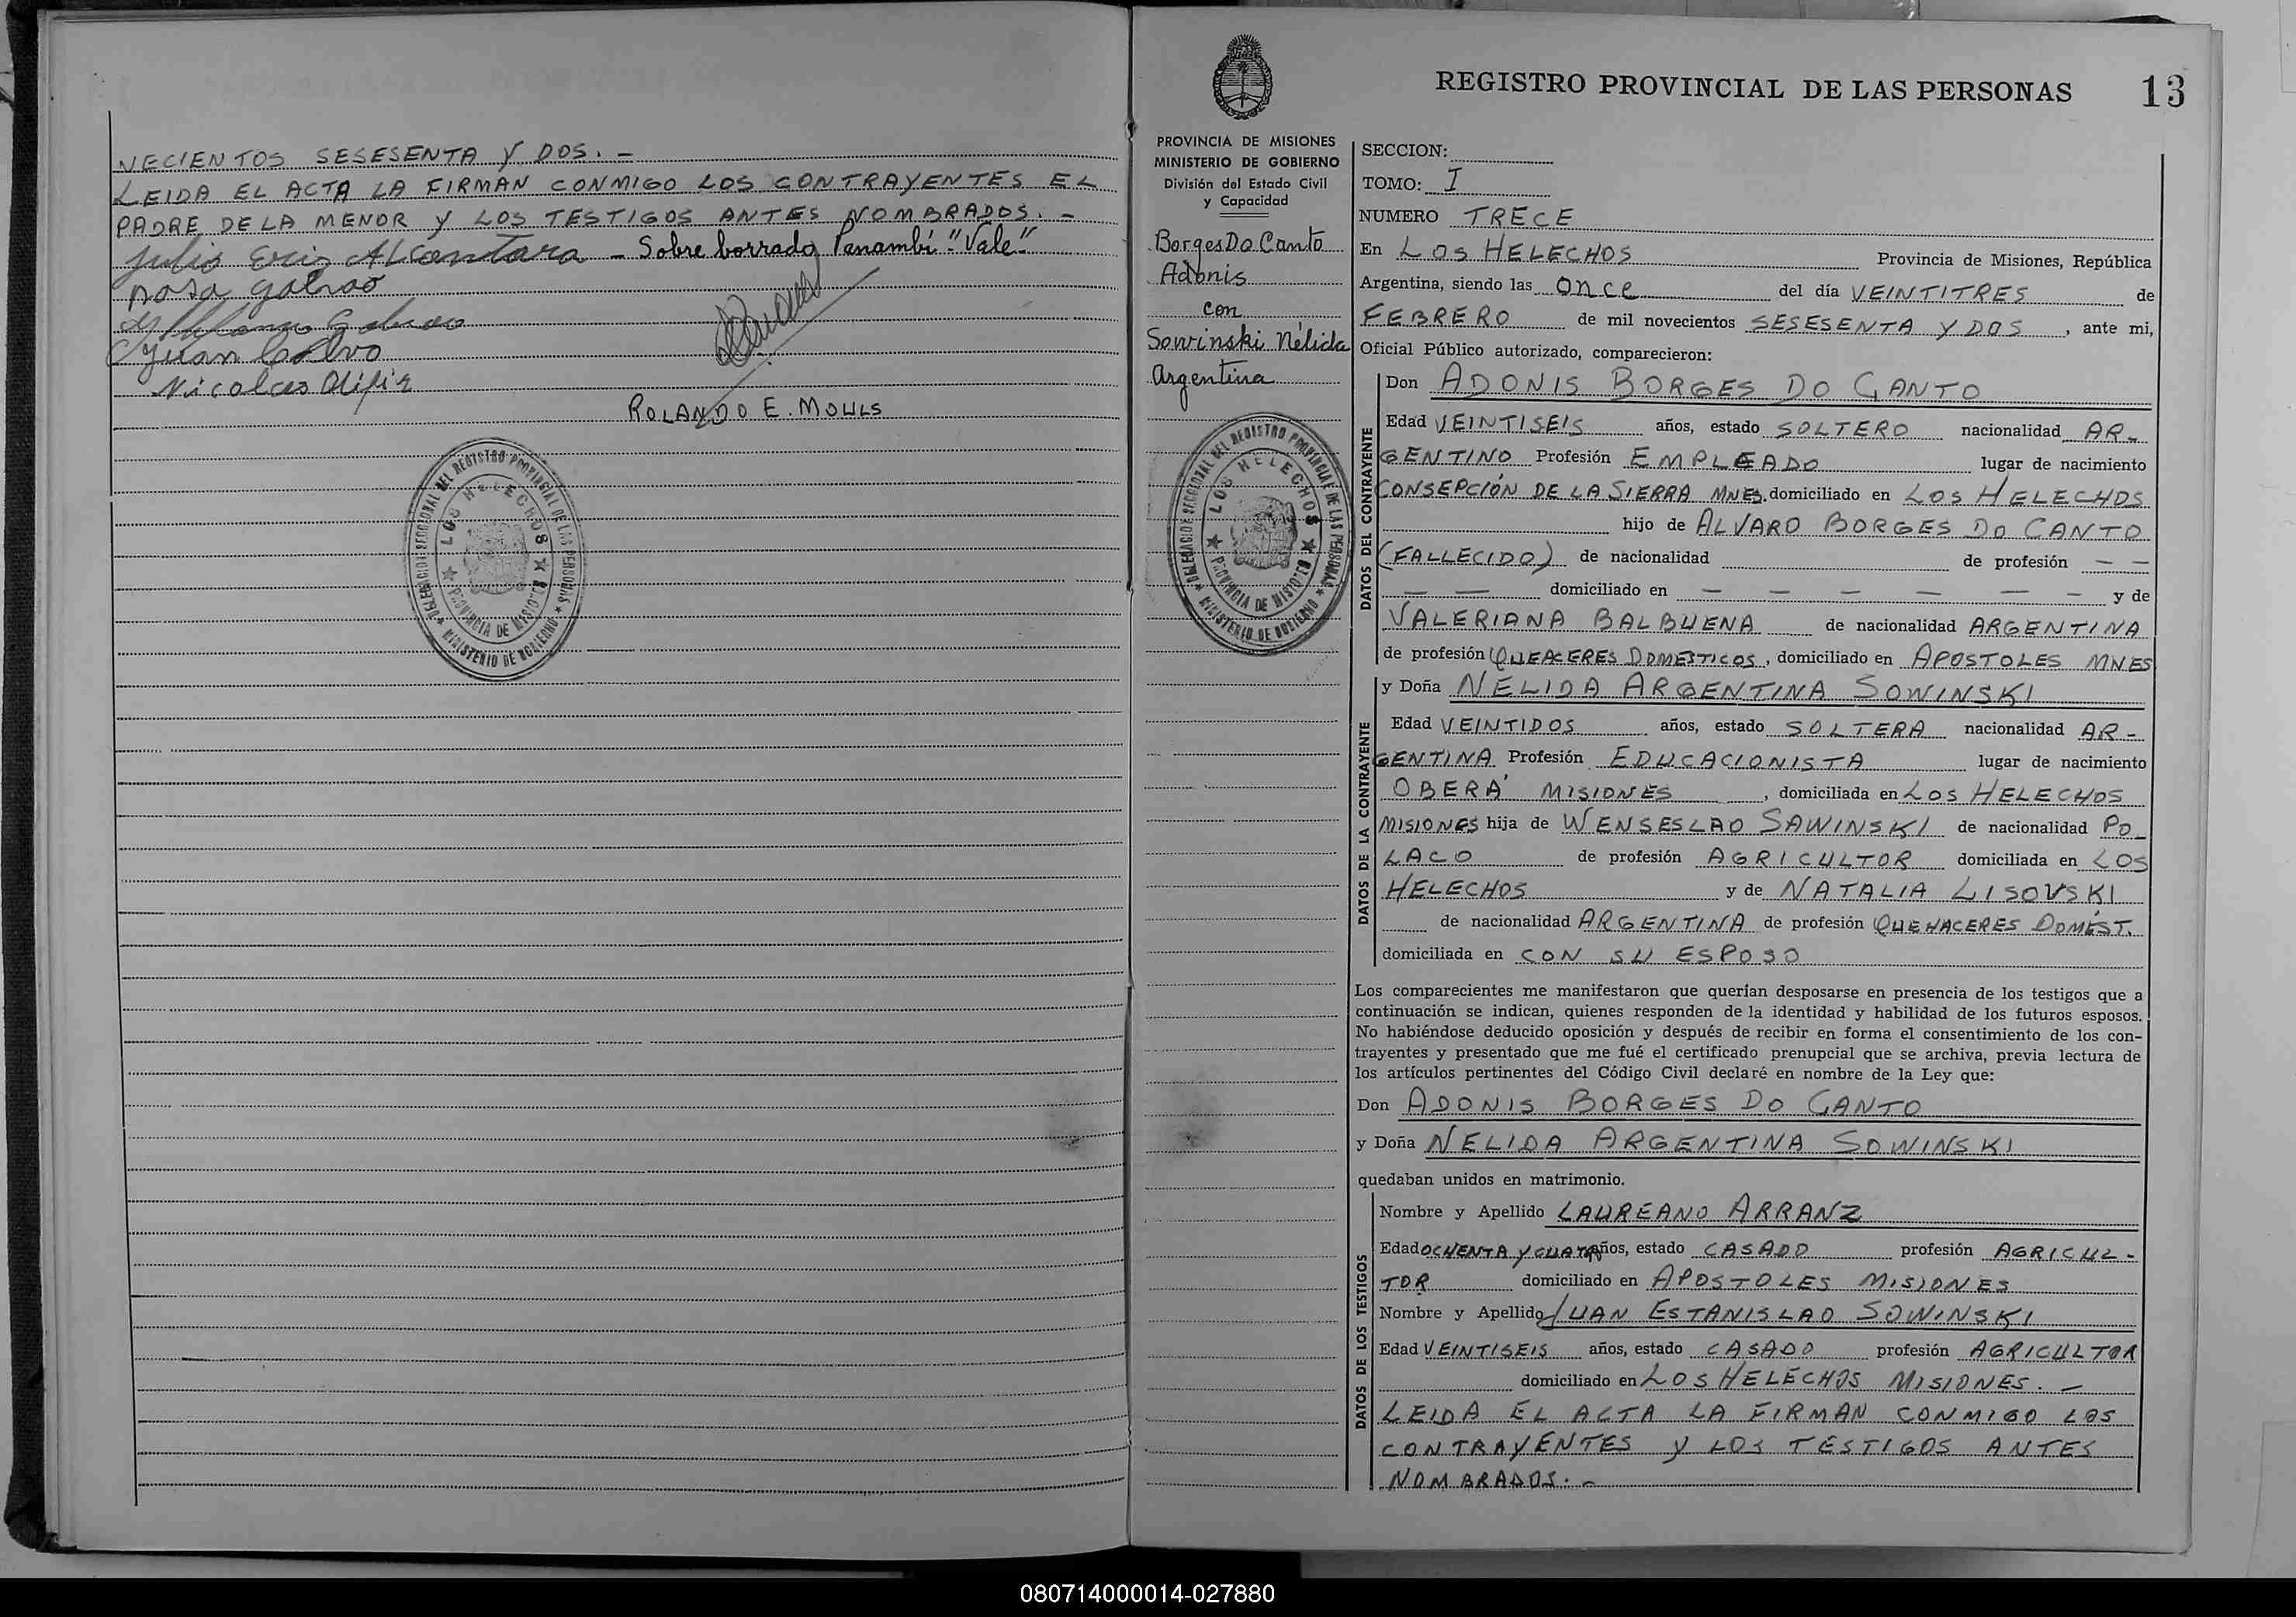 VECIENTOS SESESENTA Y DOS. -
LEIDA EL ACTA LA FIRMAN CONMIGO LOS CONTRAYENTES EL
PADRE DE LA MENOR Y LOS TESTIGOS ANTES NOMBRADOS. -
Julio Alcantara - Sobre borrado Panambí "Vale"
rosa galvao
Juan
Nicolas
ROLANDO E. MOULS
DELEGACION SECCIONAL DEL REGISTRO PROVINCIAL DE LAS PERSONAS
LOS HELECHOS
PROVINCIA DE MISIONES
MINISTERIO DE GOBIERNO
REGISTRO PROVINCIAL DE LAS PERSONAS 13
PROVINCIA DE MISIONES
MINISTERIO DE GOBIERNO
División del Estado Civil
y Capacidad
Borges Do Canto
Adonis
con
Sowinski Nélida
Argentina
DELEGACION SECCIONAL DEL REGISTRO PROVINCIAL DE LAS PERSONAS
LOS HELECHOS
PROVINCIA DE MISIONES
MINISTERIO DE GOBIERNO
SECCION:
TOMO: I
NUMERO TRECE
En LOS HELECHOS Provincia de Misiones, República
Argentina, siendo las once del día VEINTITRES de
FEBRERO de mil novecientos SESESENTA Y DOS, ante mi,
Oficial Público autorizado, comparecieron:
DATOS DEL CONTRAYENTE
Don ADONIS BORGES DO CANTO
Edad VEINTISEIS años, estado SOLTERO nacionalidad AR-
GENTINO Profesión EMPLEADO lugar de nacimiento
CONSEPCIÓN DE LA SIERRA MNES. domiciliado en LOS HELECHOS
hijo de ALVARO BORGES DO CANTO
(FALLECIDO) de nacionalidad de profesión — —
— — domiciliado en — — — — — — y de
VALERIANA BALBUENA de nacionalidad ARGENTINA
de profesión QUEACERES DOMESTICOS, domiciliado en APOSTOLES MNES
DATOS DE LA CONTRAYENTE
y Doña NELIDA ARGENTINA SOWINSKI
Edad VEINTIDOS años, estado SOLTERA nacionalidad AR-
GENTINA Profesión EDUCACIONISTA lugar de nacimiento
OBERÁ MISIONES, domiciliada en LOS HELECHOS
MISIONES hija de WENSESLAO SAWINSKI de nacionalidad PO-
LACO de profesión AGRICULTOR domiciliada en LOS
HELECHOS y de NATALIA LISOVSKI
de nacionalidad ARGENTINA de profesión QUEHACERES DOMÉST.
domiciliada en CON SU ESPOSO
Los comparecientes me manifestaron que querían desposarse en presencia de los testigos que a
continuación se indican, quienes responden de la identidad y habilidad de los futuros esposos.
No habiéndose deducido oposición y después de recibir en forma el consentimiento de los con-
trayentes y presentado que me fué el certificado prenupcial que se archiva, previa lectura de
los artículos pertinentes del Código Civil declaré en nombre de la Ley que:
Don ADONIS BORGES DO CANTO
y Doña NELIDA ARGENTINA SOWINSKI
quedaban unidos en matrimonio.
DATOS DE LOS TESTIGOS
Nombre y Apellido LAUREANO ARRANZ
Edad OCHENTA Y CUATRO años, estado CASADO profesión AGRICUL-
TOR domiciliado en APOSTOLES MISIONES
Nombre y Apellido JUAN ESTANISLAO SOWINSKI
Edad VEINTISEIS años, estado CASADO profesión AGRICULTOR
domiciliado en LOS HELECHOS MISIONES. -
LEIDA EL ACTA LA FIRMAN CONMIGO LOS
CONTRAYENTES Y LOS TESTIGOS ANTES
NOMBRADOS. -
080714000014-027880